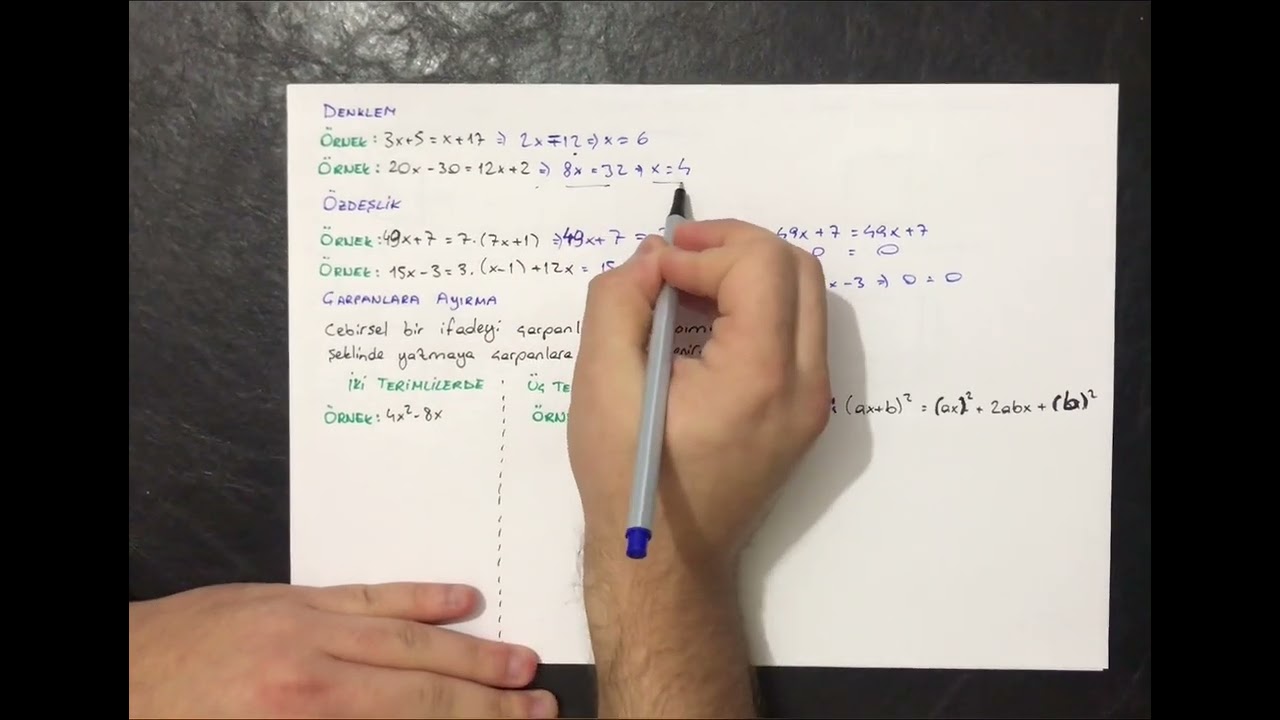 DENKLEM
ÖRNEK: 3x+5=x+17 ⇒ 2x=12 ⇒ x=6
ÖRNEK: 20x-30=12x+2 ⇒ 8x=32 ⇒ x=4
ÖZDEŞLİK
ÖRNEK: 49x+7=7.(7x+1) ⇒ 49x+7 = 49x+7=49x+7
0 = 0
ÖRNEK: 15x-3=3.(x-1)+12x= x-3 ⇒ 0=0
ÇARPANLARA AYIRMA
Cebirsel bir ifadeyi
şeklinde yazmaya çarpanlara
İKİ TERİMLİLERDE ÜÇ
ÖRNEK: 4x²-8x ÖRN (ax+b)² = (ax)² + 2abx + (bx)²